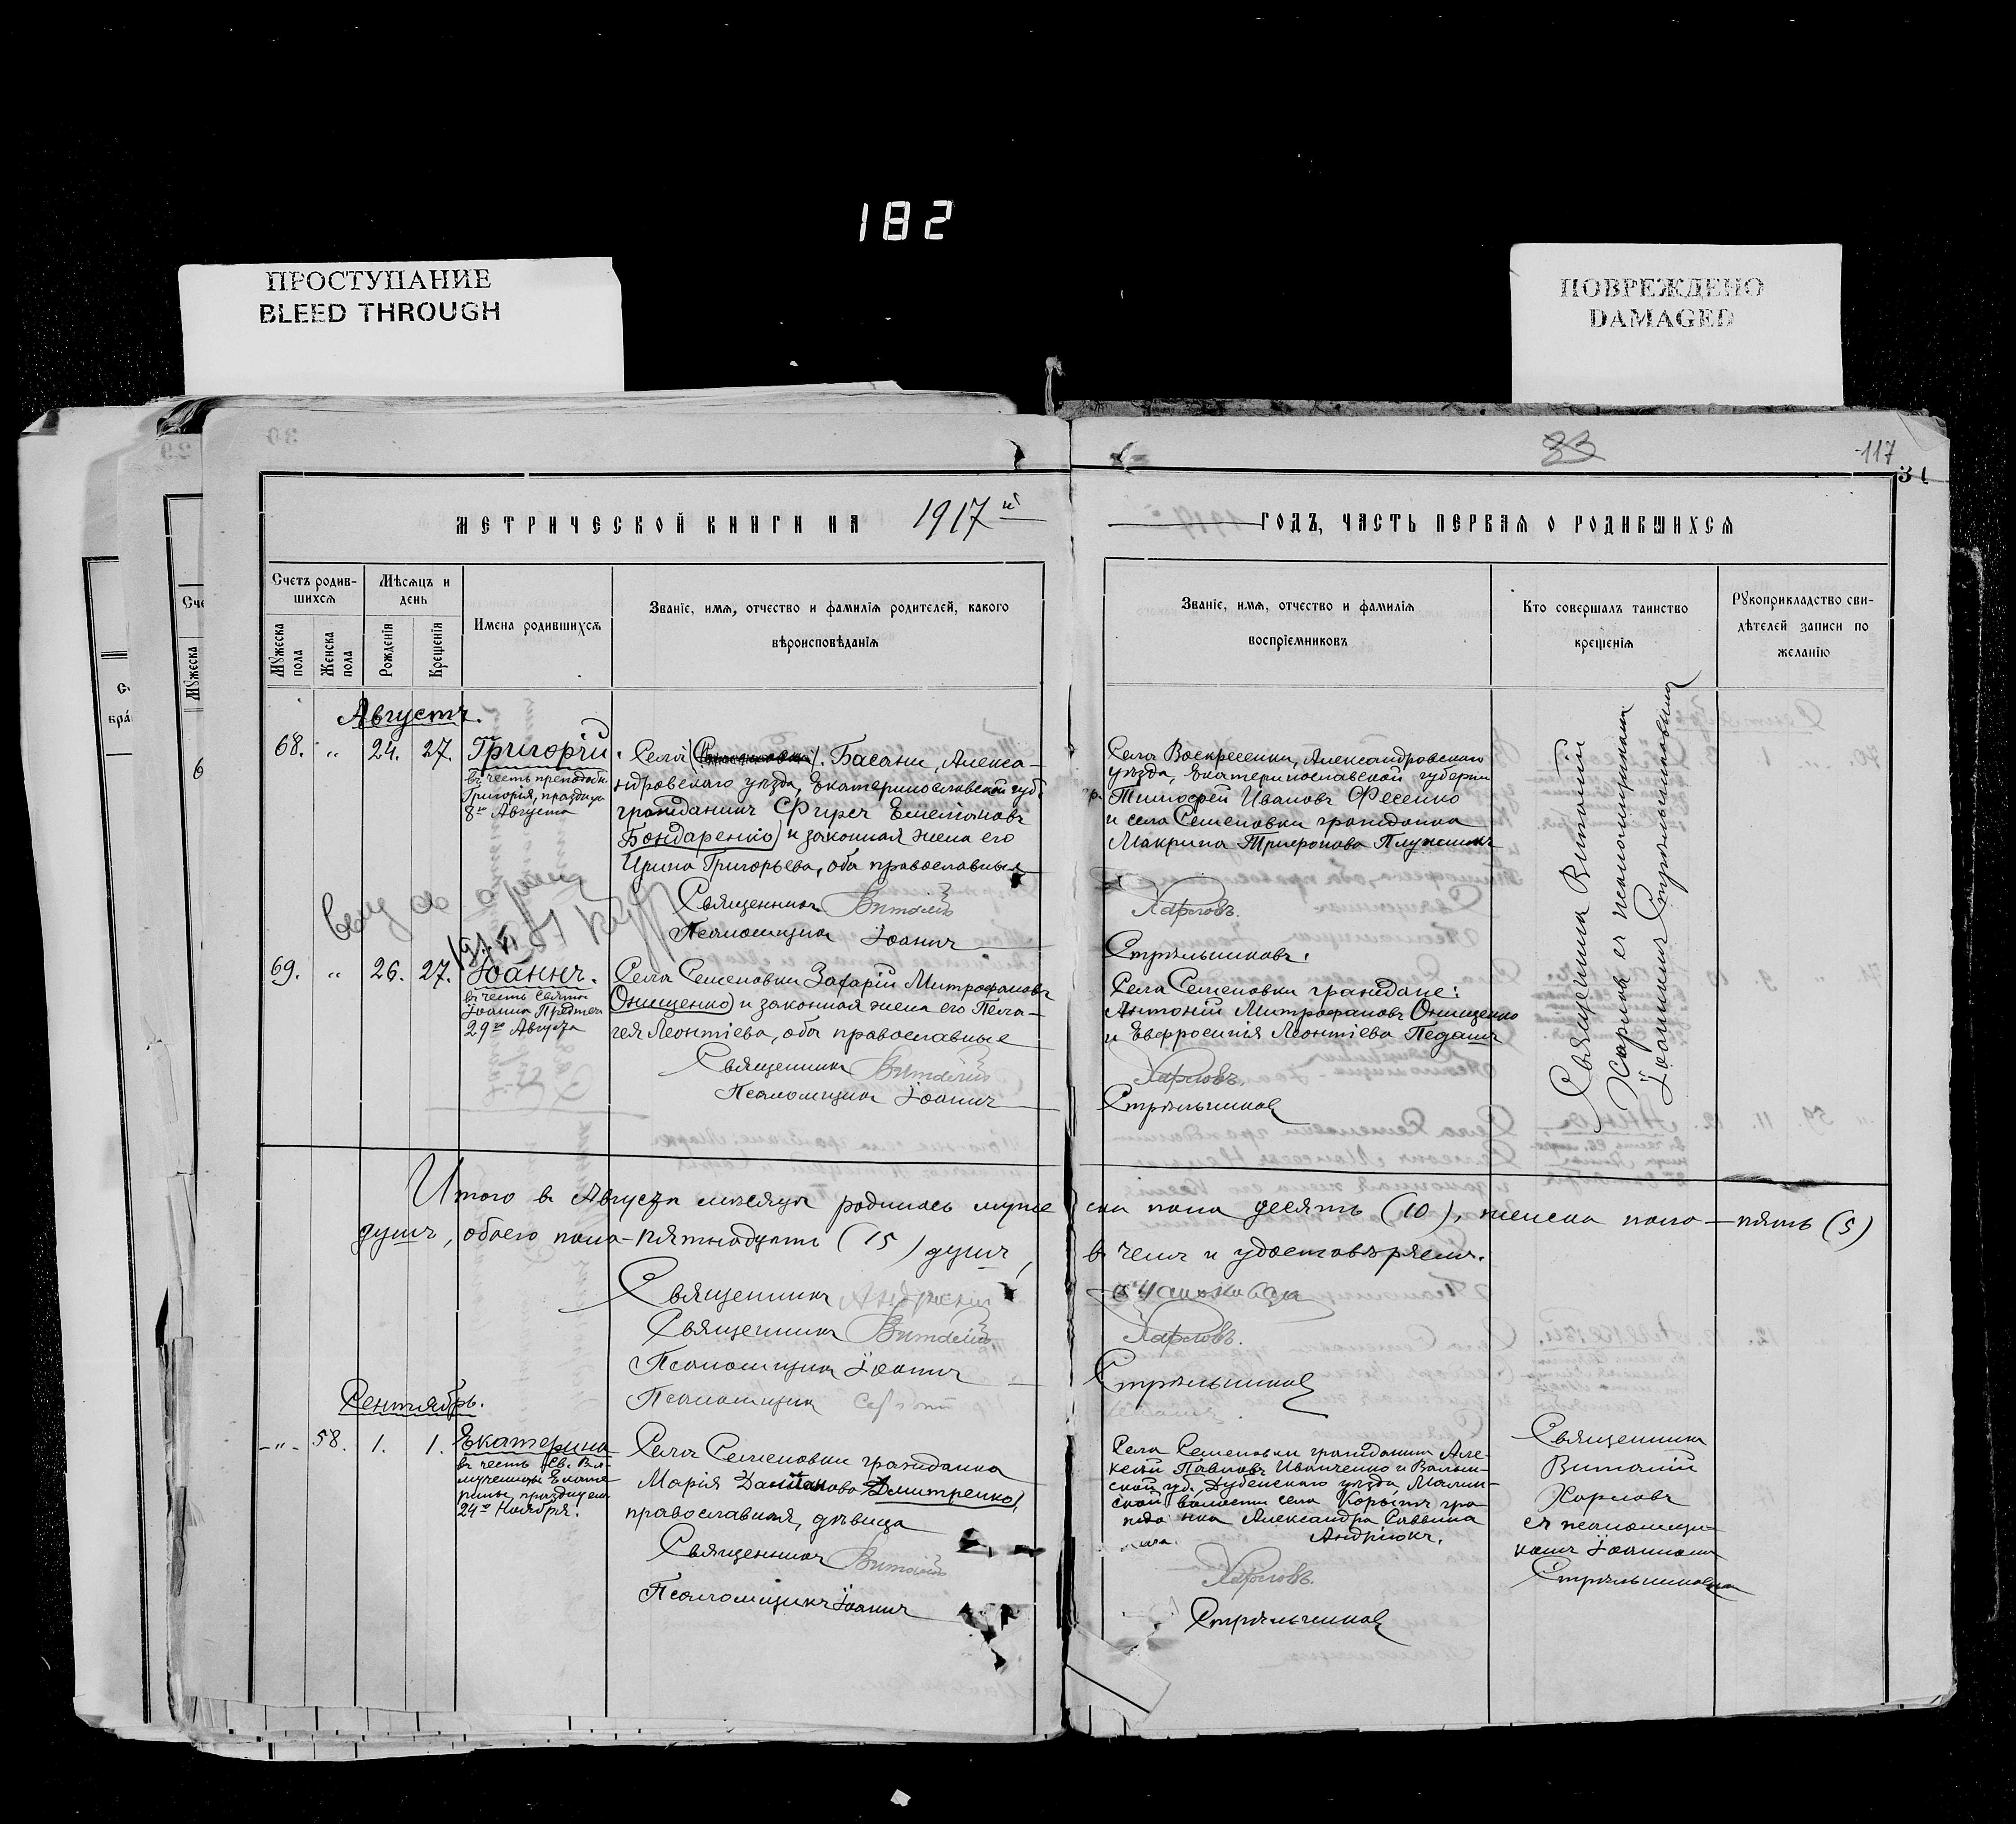 182
ПРОСТУПАНИЕ
BLEED THROUGH
ПОВРЕЖДЕНО
DAMAGED
30
29
33
117
31
МЕТРИЧЕСКОЙ КНИГИ НА 1917й
ГОДЪ, ЧАСТЬ ПЕРВАЯ О РОДИВШИХСЯ
Счетъ родив-
шихся
Мѣсяцъ и
день
Мужеска
пола
Женска
пола
Рожденія
Крещенія
Имена родившихся
Званіе, имя, отчество и фамилія родителей, какого
вѣроисповѣданія
Званіе, имя, отчество и фамилія
воспріемниковъ
Кто совершалъ таинство
крещенія
Рукоприкладство сви-
дѣтелей записи по
желанію
Августъ.
68. " 24. 27. Григорій.
въ честь преподобн.
Григорія, празднуем
8го Августа
Села Басани, Алекса-
ндровскаго уѣзда, Екатеринославской губ.
гражданинъ Фирсъ Емеліановъ
Бондаренко и законная жена его
Ирина Григорьева, оба православные
Священникъ Виталій
Псаломщикъ Іоаннъ
Села Воскресенки, Александровскаго
уѣзда, Екатеринославской губерніи
гр. Тимофей Ивановъ Фесенко
и села Семеновки гражданка
Макрина Трифонова Плужникъ
Харловъ.
Стрѣльниковъ.
Священникъ Виталій
Харловъ съ псаломщикомъ
Іоанномъ Стрѣльниковымъ
69. " 26. 27. Іоаннъ.
въ честь Святаго
Іоанна Предтечи
29го Августа
Села Семеновки Захарій Митрофановъ
Онищенко и законная жена его Пела-
гея Леонтіева, оба православные
Священникъ Виталій
Псаломщикъ Іоаннъ
Села Семеновки граждане:
Антоній Митрофановъ Онищенко
и Евфросинія Леонтіева Педашъ
Харловъ.
Стрѣльниковъ
Итого въ Августѣ мѣсяцѣ родилось муже ска пола десять (10), женска пола — пять (5)
душъ, обоего пола — пятнадцать (15) душъ, въ чемъ и удостовѣряемъ.
Священникъ Андрей
Священникъ Виталій
Харловъ.
Псаломщикъ Іоаннъ
Стрѣльниковъ
Псаломщикъ Сергій
Сентябрь.
-"- 58. 1. 1. Екатерина
въ честь Св. Ве-
мученицы Екате-
рины, празднуем
24го Ноября.
Села Семеновки гражданка
Марія Дмитренко,
православная, дѣвица
Священникъ Виталій
Псаломщикъ Іоаннъ
Села Семеновки гражданинъ Але-
ксѣй Павловъ Иванченко и Волын-
ской губ., Дубенскаго уѣзда, Малин-
ской волости села Корытъ гра-
жданка Александра Саввина
Андріюкъ.
Харловъ.
Стрѣльниковъ
Священникъ
Виталій
Харловъ
съ псаломщи-
комъ Іоанномъ
Стрѣльниковымъ